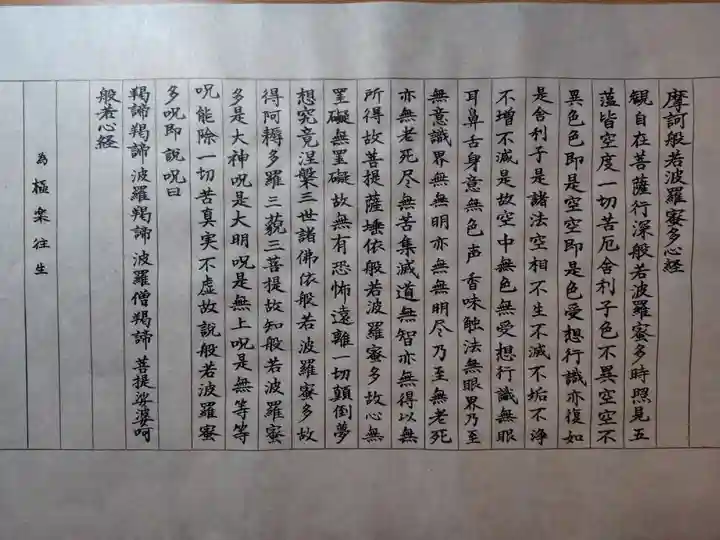 摩訶般若波羅蜜多心経
観自在菩薩行深般若波羅蜜多時照見五
蘊皆空度一切苦厄舎利子色不異空空不
異色色即是空空即是色受想行識亦復如
是舎利子是諸法空相不生不滅不垢不浄
不増不減是故空中無色無受想行識無眼
耳鼻舌身意無色声香味触法無眼界乃至
無意識界無無明亦無無明尽乃至無老死
亦無老死尽無苦集滅道無智亦無得以無
所得故菩提薩埵依般若波羅蜜多故心無
罣礙無罣礙故無有恐怖遠離一切顛倒夢
想究竟涅槃三世諸佛依般若波羅蜜多故
得阿耨多羅三藐三菩提故知般若波羅蜜
多是大神呪是大明呪是無上呪是無等等
呪能除一切苦真実不虚故説般若波羅蜜
多呪即説呪曰
羯諦羯諦 波羅羯諦 波羅僧羯諦 菩提娑婆呵
般若心経
為 極楽往生